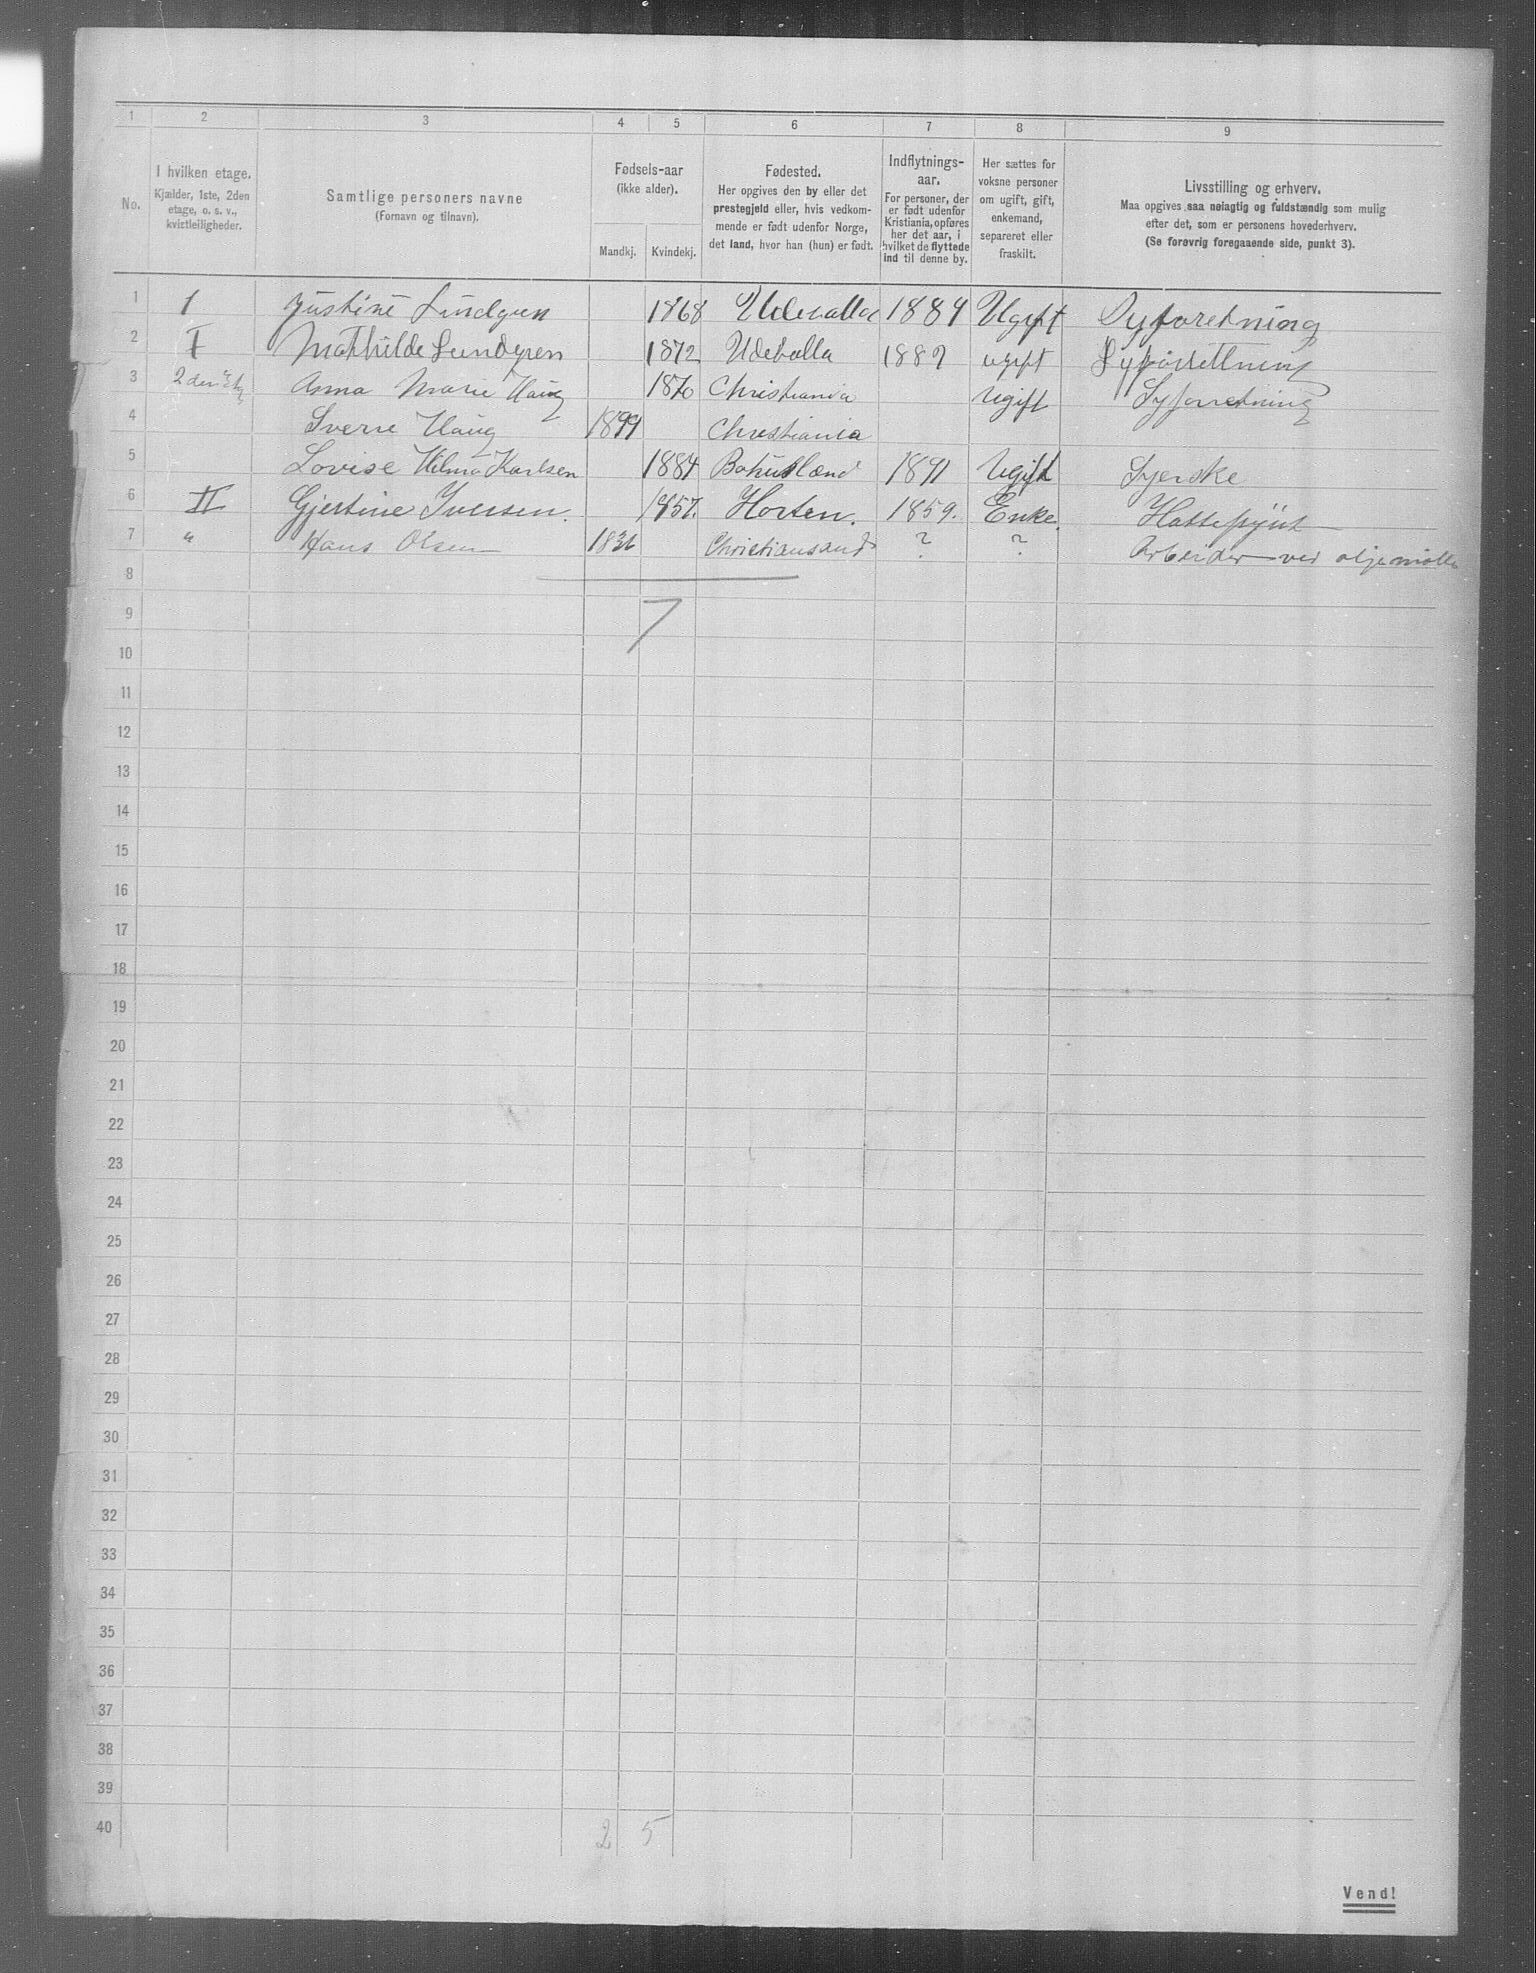 1 2 3 4 5 6 7 8 9
No.
I hvilken etage.
Kjælder, 1ste, 2den
etage, o. s. v.,
kvistleiligheder.
Samtlige personers navne
(Fornavn og tilnavn).
Fødsels-aar
(ikke alder).
Mandkj. Kvindekj.
Fødested.
Her opgives den by eller det
prestegjeld eller, hvis vedkom-
mende er født udenfor Norge,
det land, hvor han (hun) er født.
Indflytnings-
aar.
For personer, der
er født udenfor
Kristiania, opføres
her det aar, i
hvilket de flyttede
ind til denne by.
Her sættes for
voksne personer
om ugift, gift,
enkemand,
separeret eller
fraskilt.
Livsstilling og erhverv.
Maa opgives saa nøiagtig og fuldstændig som mulig
efter det, som er personens hovederhverv.
(Se forøvrig foregaaende side, punkt 3).
1 1 Justine Lundgren 1868 Udevalla 1884 Ugift Syforetning
2 I Mathilde Lundgren 1872 Udevalla 1887 ugift Syforrettning
3 2den Etg Anna Marie Haug 1870 Christiania Ugift Syforretning
4 Sverre Haug 1899 Christiania
5 Lovise Hilma Karlsen 1884 Bohuslænd 1891 Ugift Syerske
6 II Gjestine Iversen. 1857. Horten. 1859. Enke. Hattepynt
7 " Hans Olsen 1836 Christiansand ? ? Arbeider ved oljemølle
8
7
9
10
11
12
13
14
15
16
17
18
19
20
21
22
23
24
25
26
27
28
29
30
31
32
33
34
35
36
37
38
39
40 2 5
Vend!